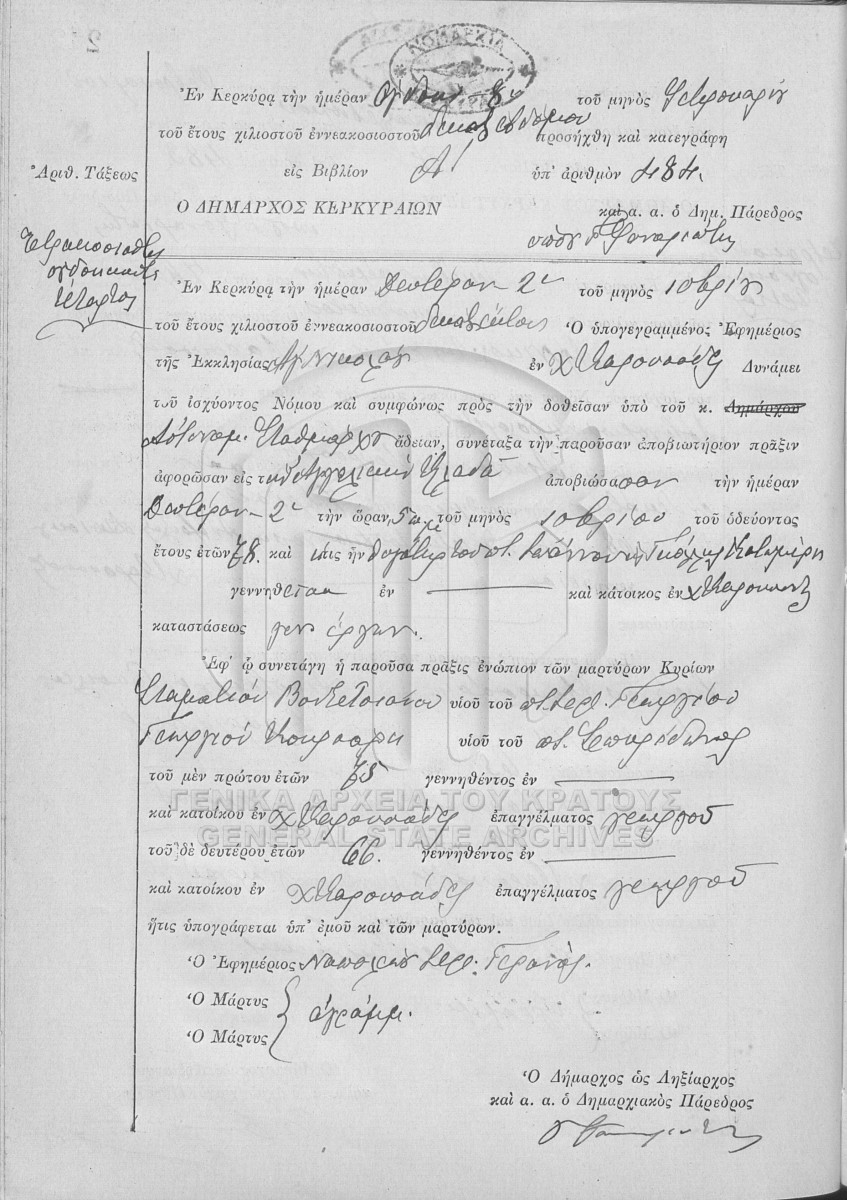 ΝΟΜΑΡΧΙΑ
Ἐν Κερκύρᾳ τὴν ἡμέραν ὀγδόην 8ην τοῦ μηνὸς Φεβρουαρίου
τοῦ ἔτους χιλιοστοῦ ἐννεακοσιοστοῦ δεκάτου ἑβδόμου προσήχθη καὶ κατεγράφη
Ἀριθ. Τάξεως
εἰς Βιβλίον Α' ὑπ' ἀριθμὸν 484
Ο ΔΗΜΑΡΧΟΣ ΚΕΡΚΥΡΑΙΩΝ
καὶ α. α. ὁ Δημ. Πάρεδρος
Τετρακοσιοστὸς
ὀγδοηκοστὸς
τέταρτος
Ἐν Κερκύρᾳ τὴν ἡμέραν Δευτέραν 2α τοῦ μηνὸς 10βρίου
τοῦ ἔτους χιλιοστοῦ ἐννεακοσιοστοῦ Ὁ ὑπογεγραμμένος Ἐφημέριος
τῆς Ἐκκλησίας Ἁγ. Νικολάου ἐν χ Καρουσάδες Δυνάμει
τοῦ ἰσχύοντος Νόμου καὶ συμφώνως πρὸς τὴν δοθεῖσαν ὑπὸ τοῦ κ. Δημάρχου
Ἀστυνομ. Σταθμάρχου ἄδειαν, συνέταξα τὴν παροῦσαν ἀποβιωτήριον πρᾶξιν
ἀφορῶσαν εἰς τὴν Ἀγγελικὴν ἀποβιώσασαν τὴν ἡμέραν
Δευτέραν 2α τὴν ὥραν 5 τοῦ μηνὸς 10βρίου τοῦ ὁδεύοντος
ἔτους ἐτῶν 78 καὶ ἥτις ἦν θυγάτηρ τοῦ ποτ. Ἰωάννου
γεννηθεῖσα ἐν καὶ κάτοικος ἐν χ Καρουσάδες
καταστάσεως ἄνευ ἔργου.
Ἐφ' ᾧ συνετάγη ἡ παροῦσα πρᾶξις ἐνώπιον τῶν μαρτύρων Κυρίων
Σταματίου υἱοῦ τοῦ ποτ. ἱερ. Γεωργίου
Γεωργίου υἱοῦ τοῦ ποτ. Σπυρίδωνος
τοῦ μὲν πρώτου ἐτῶν 75 γεννηθέντος ἐν
ΓΕΝΙΚΑ ΑΡΧΕΙΑ ΤΟΥ ΚΡΑΤΟΥΣ
καὶ κατοίκου ἐν χ Καρουσάδες ἐπαγγέλματος γεωργοῦ
GENERAL STATE ARCHIVES
τοῦ δὲ δευτέρου ἐτῶν 66. γεννηθέντος ἐν
καὶ κατοίκου ἐν χ Καρουσάδες ἐπαγγέλματος γεωργοῦ
ἥτις ὑπογράφεται ὑπ' ἐμοῦ καὶ τῶν μαρτύρων.
Ὁ Ἐφημέριος
Ὁ Μάρτυς
ἀγράμμ.
Ὁ Μάρτυς
Ὁ Δήμαρχος ὡς Ληξίαρχος
καὶ α. α. ὁ Δημαρχιακὸς Πάρεδρος